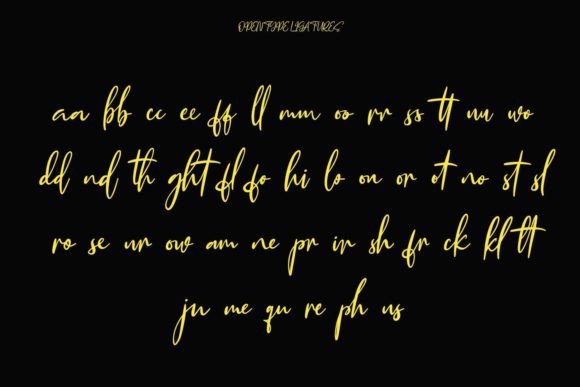 OPENTYPE LIGATURES
aa bb cc ee ff ll mm oo rr ss tt uu wo
dd nd th ght fl fo hi lo on or ot no st sl
ro se ur ow am ne pr ir sh fr ck kl tt
ju me qu re ph us